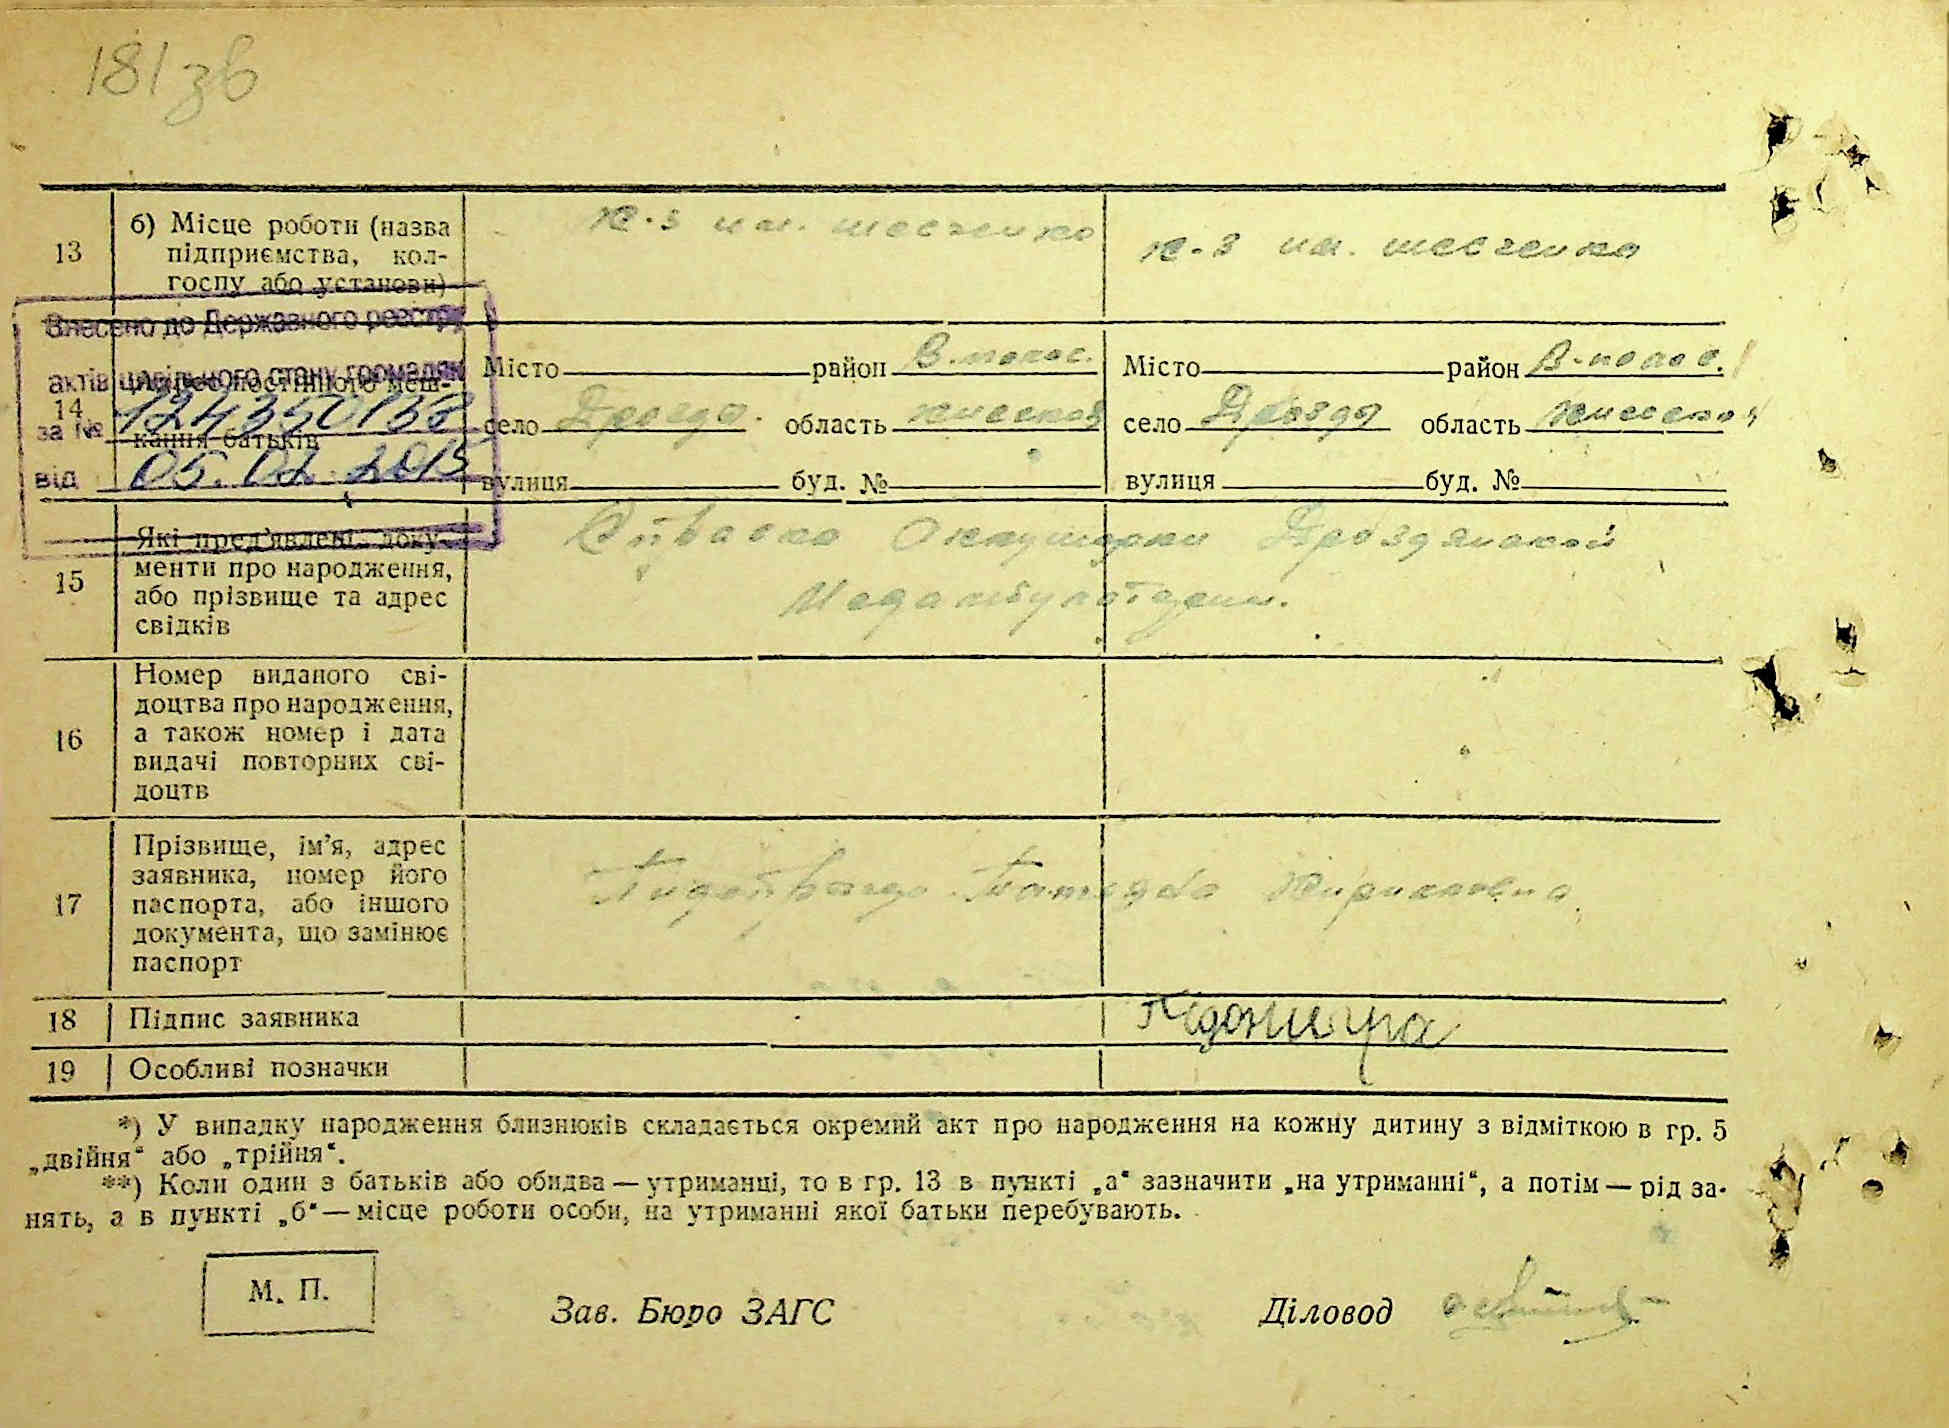 181 зв
13
б) Місце роботи (назва
підприємства, кол-
госпу або установи)
к-з им. шевченко
к-з им. шевченко
Внесено до Державного реєстру
актів цивільного стану громадян
за № 124350158
від 05.02.2013
14
меш-
кання батьків
Місто район В-полов.
село Дрозды область киевской
вулиця буд. №
Місто район В-полов.
село Дрозды область киевской
вулиця буд. №
15
Які пред'явлені доку-
менти про народження,
або прізвище та адрес
свідків
Справка Акушерки Дроздянской
16
Номер виданого сві-
доцтва про народження,
а також номер і дата
видачі повторних сві-
доцтв
17
Прізвище, ім'я, адрес
заявника, номер його
паспорта, або іншого
документа, що замінює
паспорт
Кириловна
18
Підпис заявника
19
Особливі позначки
*) У випадку народження близнюків складається окремий акт про народження на кожну дитину з відміткою в гр. 5
„двійня“ або „трійня“.
**) Коли один з батьків або обидва — утриманці, то в гр. 13 в пункті „а“ зазначити „на утриманні“, а потім — рід за-
нять, а в пункті „б“ — місце роботи особи, на утриманні якої батьки перебувають.
М. П.
Зав. Бюро ЗАГС
Діловод